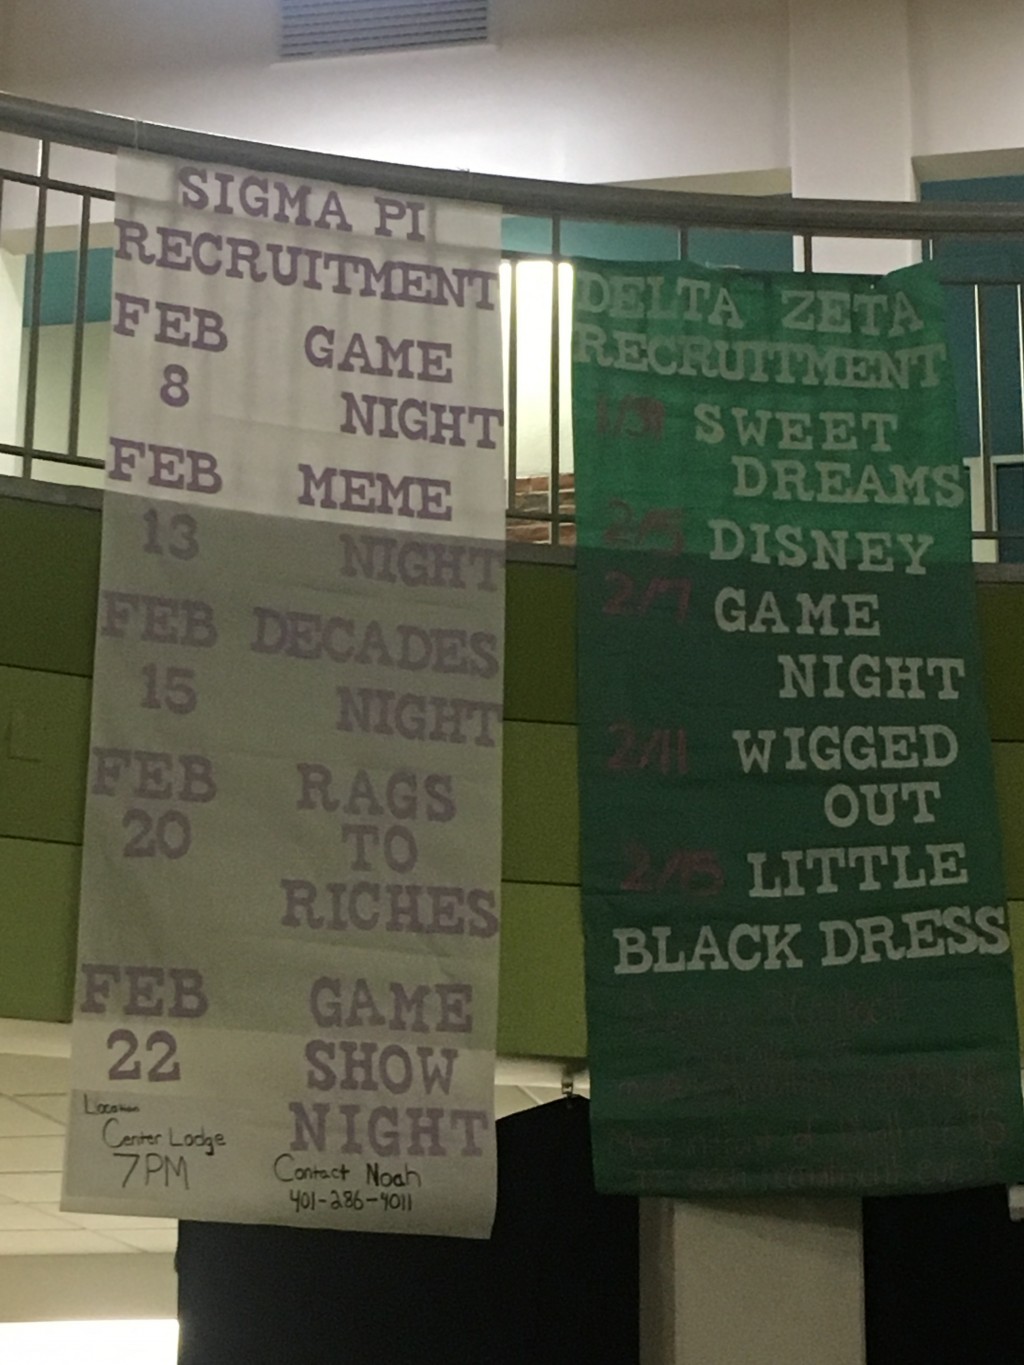 SIGMA PI
RECRUITMENT
FEB GAME
8 NIGHT
FEB MEME
13 NIGHT
FEB DECADES
15 NIGHT
FEB RAGS
20 TO
RICHES
FEB GAME
22 SHOW
NIGHT
Location
Center Lodge
7PM
Contact Noah
401-286-4011
DELTA ZETA
RECRUITMENT
1/31 SWEET
DREAMS
2/5 DISNEY
2/7 GAME
NIGHT
2/11 WIGGED
OUT
2/15 LITTLE
BLACK DRESS